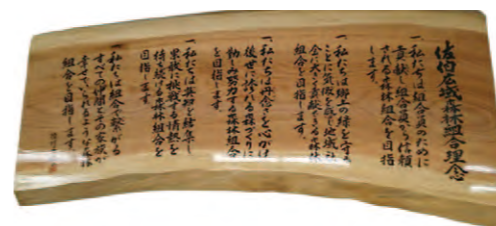 佐伯広域森林組合理念
一、私たちは組合員のために
貢献し組合員から信頼
される森林組合を目指
します。
一、私たちは郷土の緑を守る
ことに気概を持ち地域社
会に広く貢献できる森林
組合を目指します。
一、私たちは再造林を心がけ
後世に誇れる森づくりに
勤しみ努力する森林組合
を目指します。
一、私たちは英知を結集し
果敢に挑戦する情熱を
持ち続ける森林組合を
目指します。
一、私たちは組合に繋がる
すべての仲間とその家族が
幸せでいられるような森林
組合を目指します。